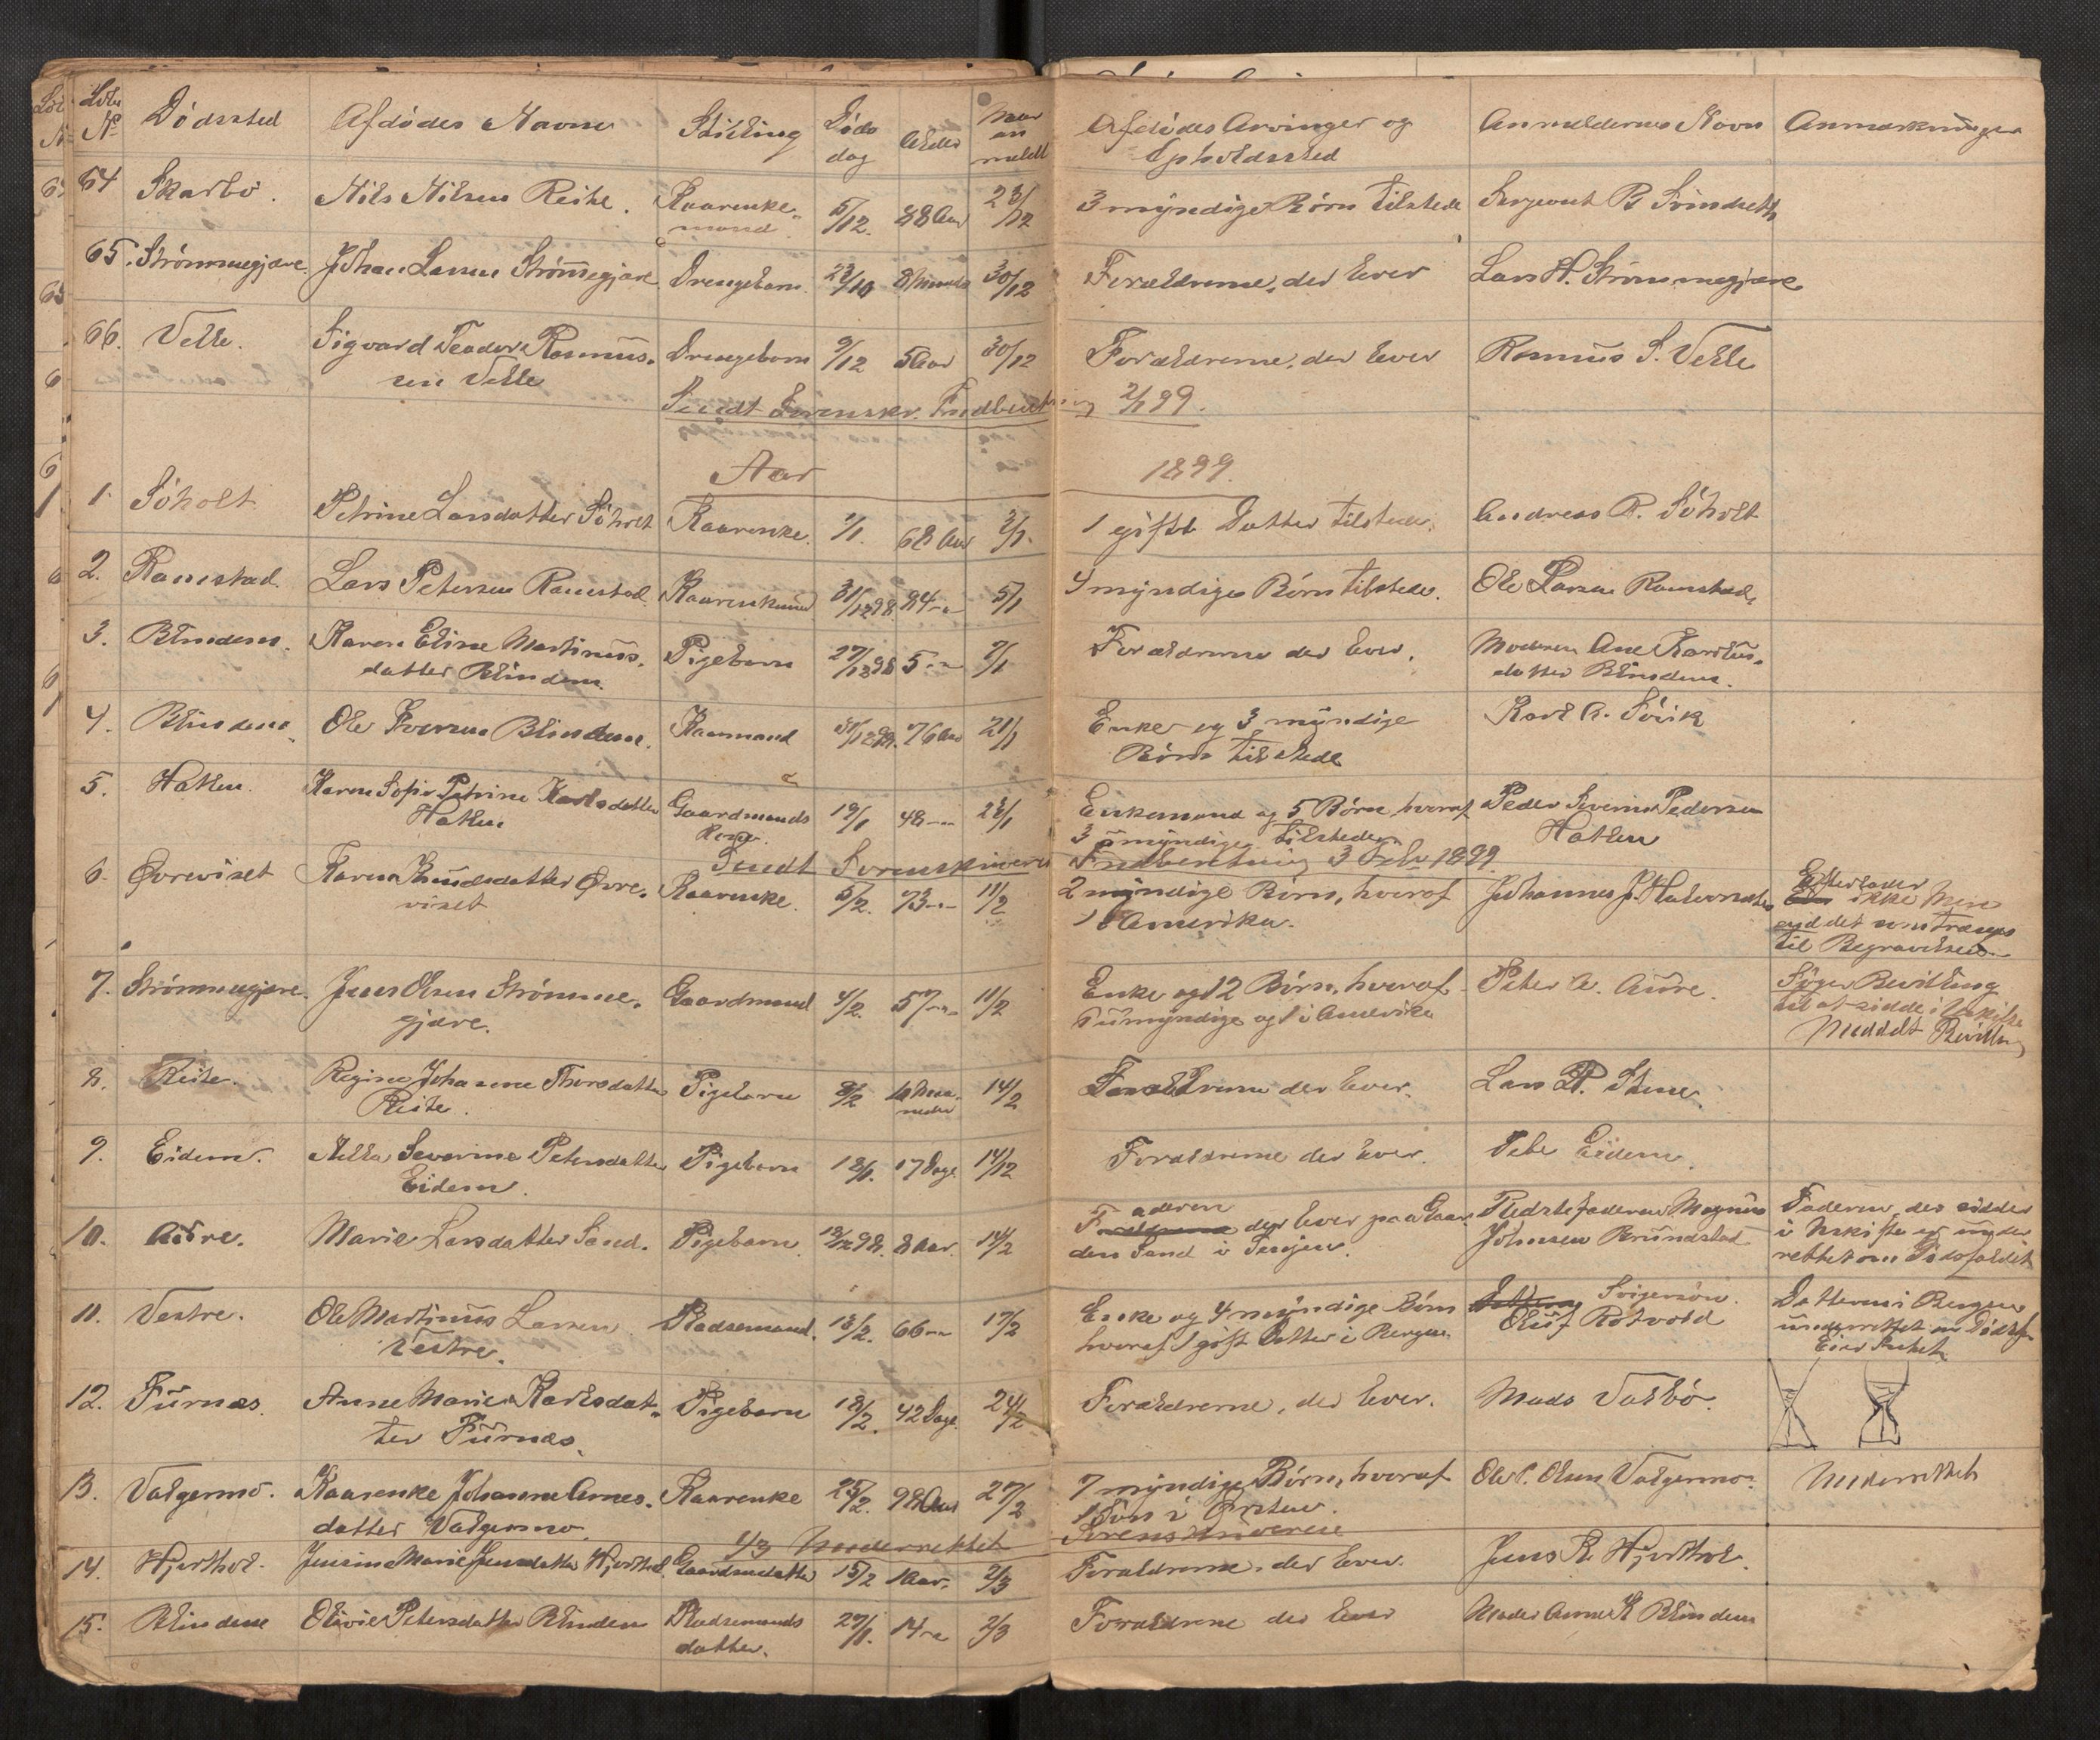 Løbe No Dødssted Afdødes Navn Stilling Døds dag Alder Naar an meldt Afdødes Arvinger og Opholdssted Anmelderens Navn Anmærkninger
64 Skarbø. Nils Nilsen Reite. Kaarenke-
mand 5/12. 88 Aar 28/12 3 myndige Børn tilstede Sergeant B
65. Strømmegjære. Johan Larsen Strømmegjære Drengebarn. 30/12 Forældrene, der lever Lars H. Strømmegjære.
66. Velle. Sigvard Teodor Rasmus-
sen Velle Drengebarn 9/12 5 Aar 30/12 Forældrene, der lever Rasmus S. Velle
Sendt Sorenskr. Indberetning 2/1 99.
Aar 1899.
1. Søholt Petrine Larsdatter Søholt Kaarenke. 1/1. 68 Aar 3/1. 1 gift Datter tilstede. Andreas P. Søholt
2. Ramstad. Lars Petersen Ramstad. Kaarenkemand 31/12 98 84 — 5/1 4 myndige Børn tilstede. Ole Larsen Ramstad.
3. Blindem. Karen Eline Martinus-
datter Blindem. Pigebarn 27/12 98 5 — 7/1 Forældrene der lever. Moderen Ane Karolus-
datter Blindem.
4. Blindem. Ole Iversen Blindem. Kaarmand 76 Aar 21/1 Enke og 3 myndige
Børn tilstede Karl A. Søvik
5. Hatlen. Karen Sofie Petrine Karlsdatter
Hatlen Gaardmands
Kone. 19/1 48 — 28/1 Enkemand og 5 Børn, hvoraf
3 umyndige tilstede. Peder Severin Pedersen
Hatlen
Sendt Sorenskriveren Indberetning 3 Febr 1899.
6. Øvreviset Karen Knudsdatter Øvre-
viset Kaarenke. 5/2. 73 — 11/2 2 myndige Børn, hvoraf
1 i Amerika. Johannes J. Efterlader
ikke Mere
end det som trænges
til Begravelsen.
7. Strømmegjære. Jens Olsen Strømme-
gjære. Gaardmand 4/2. 57 — 11/2 Enke og 12 Børn, hvoraf
umyndige og 1 i Amerika Peter A. Aure. Søger Bevilling
til at sidde i Uskifte
Meddelt Bevilling
8. Reite. Regine Johanne Thorsdatter
Reite. Pigebarn 8/2 Maa-
neder 14/2 Forældrene der lever. Lars P.
9. Eidem. Severine Petersdatter
Eidem. Pigebarn 18/1. 17 Dage. 14/12 Forældrene der lever. Peter Eidem.
10. Aure. Marie Larsdatter Sand. Pigebarn 8 Aar. 14/2 Faderen der lever paa Gaar-
den Sand i Senjen. Pleiefaderen Magnus
Johnsen Brundstad Faderen, der sidder
i Uskifte er under
rettet om Dødsfaldet
11. Vestre. Ole Martinus Larsen
Vestre. Pladsemand. 13/2. 66 — 17/2 Enke og 4 myndige Børn
hvoraf 1 gift Datter i Bergen. Svigersøn
Oluf Rotvold Datteren i Bergen
underrettet om Dødsf.
Eier Intet
12. Furnæs. Anne Marie Karlsdat-
ter Furnæs. Pigebarn 18/2. 42 Dage. 24/2 Forældrene, der lever. Mads Valbø.
13. Valgermo. Kaarenke Johanne Arnes-
datter Valgermo. Kaarenke 25/2. 98 Aar 27/2 7 myndige Børn, hvoraf
1 Søn i Ørsten. Ole P. Olsen Valgermo. Underrettet
1/3 underrettet Sorenskriveren
14. Hjorthol. Jensine Marie Jensdatter Hjorthol. Gaardmdatter 15/2 1 Aar. 2/3 Forældrene. der lever. Jens R. Hjorthol.
15. Blindem Olivie Petersdatter Blindem Pladsemands
datter. 27/1. 14 — 2/3 Forældrene der lever Moder Anne K Blindem